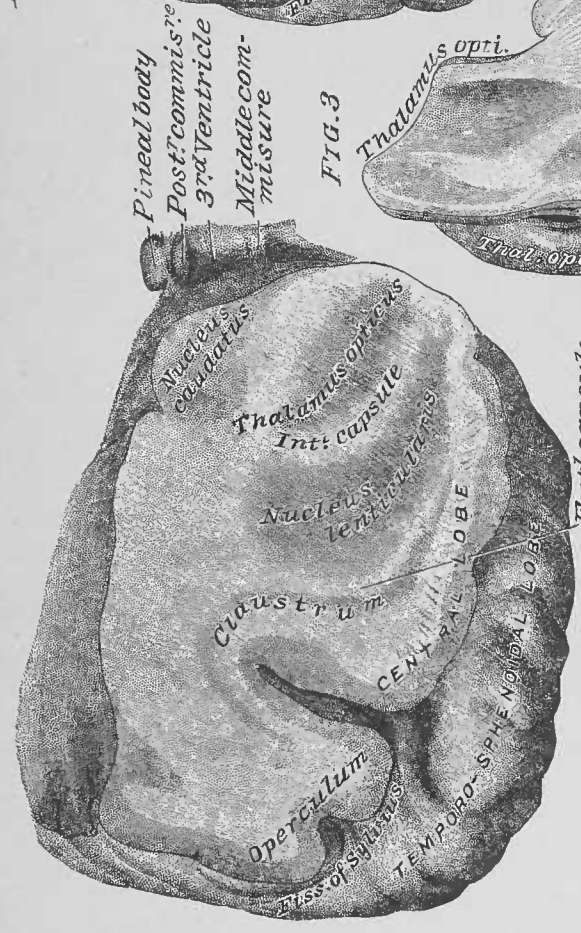 Pineal body
Post.r commis.re
3.rd Ventricle
Middle com-
misure
FIG. 3
Thalamus opti.
Thal. opt
Nucleus
caudatus
Thalamus opticus
Int: capsule
Nucleus
lenticularis
Claustrum
CENTRAL LOBE
Operculum
Fiss. of Sylvius
TEMPORO-SPHENOIDAL LOBE